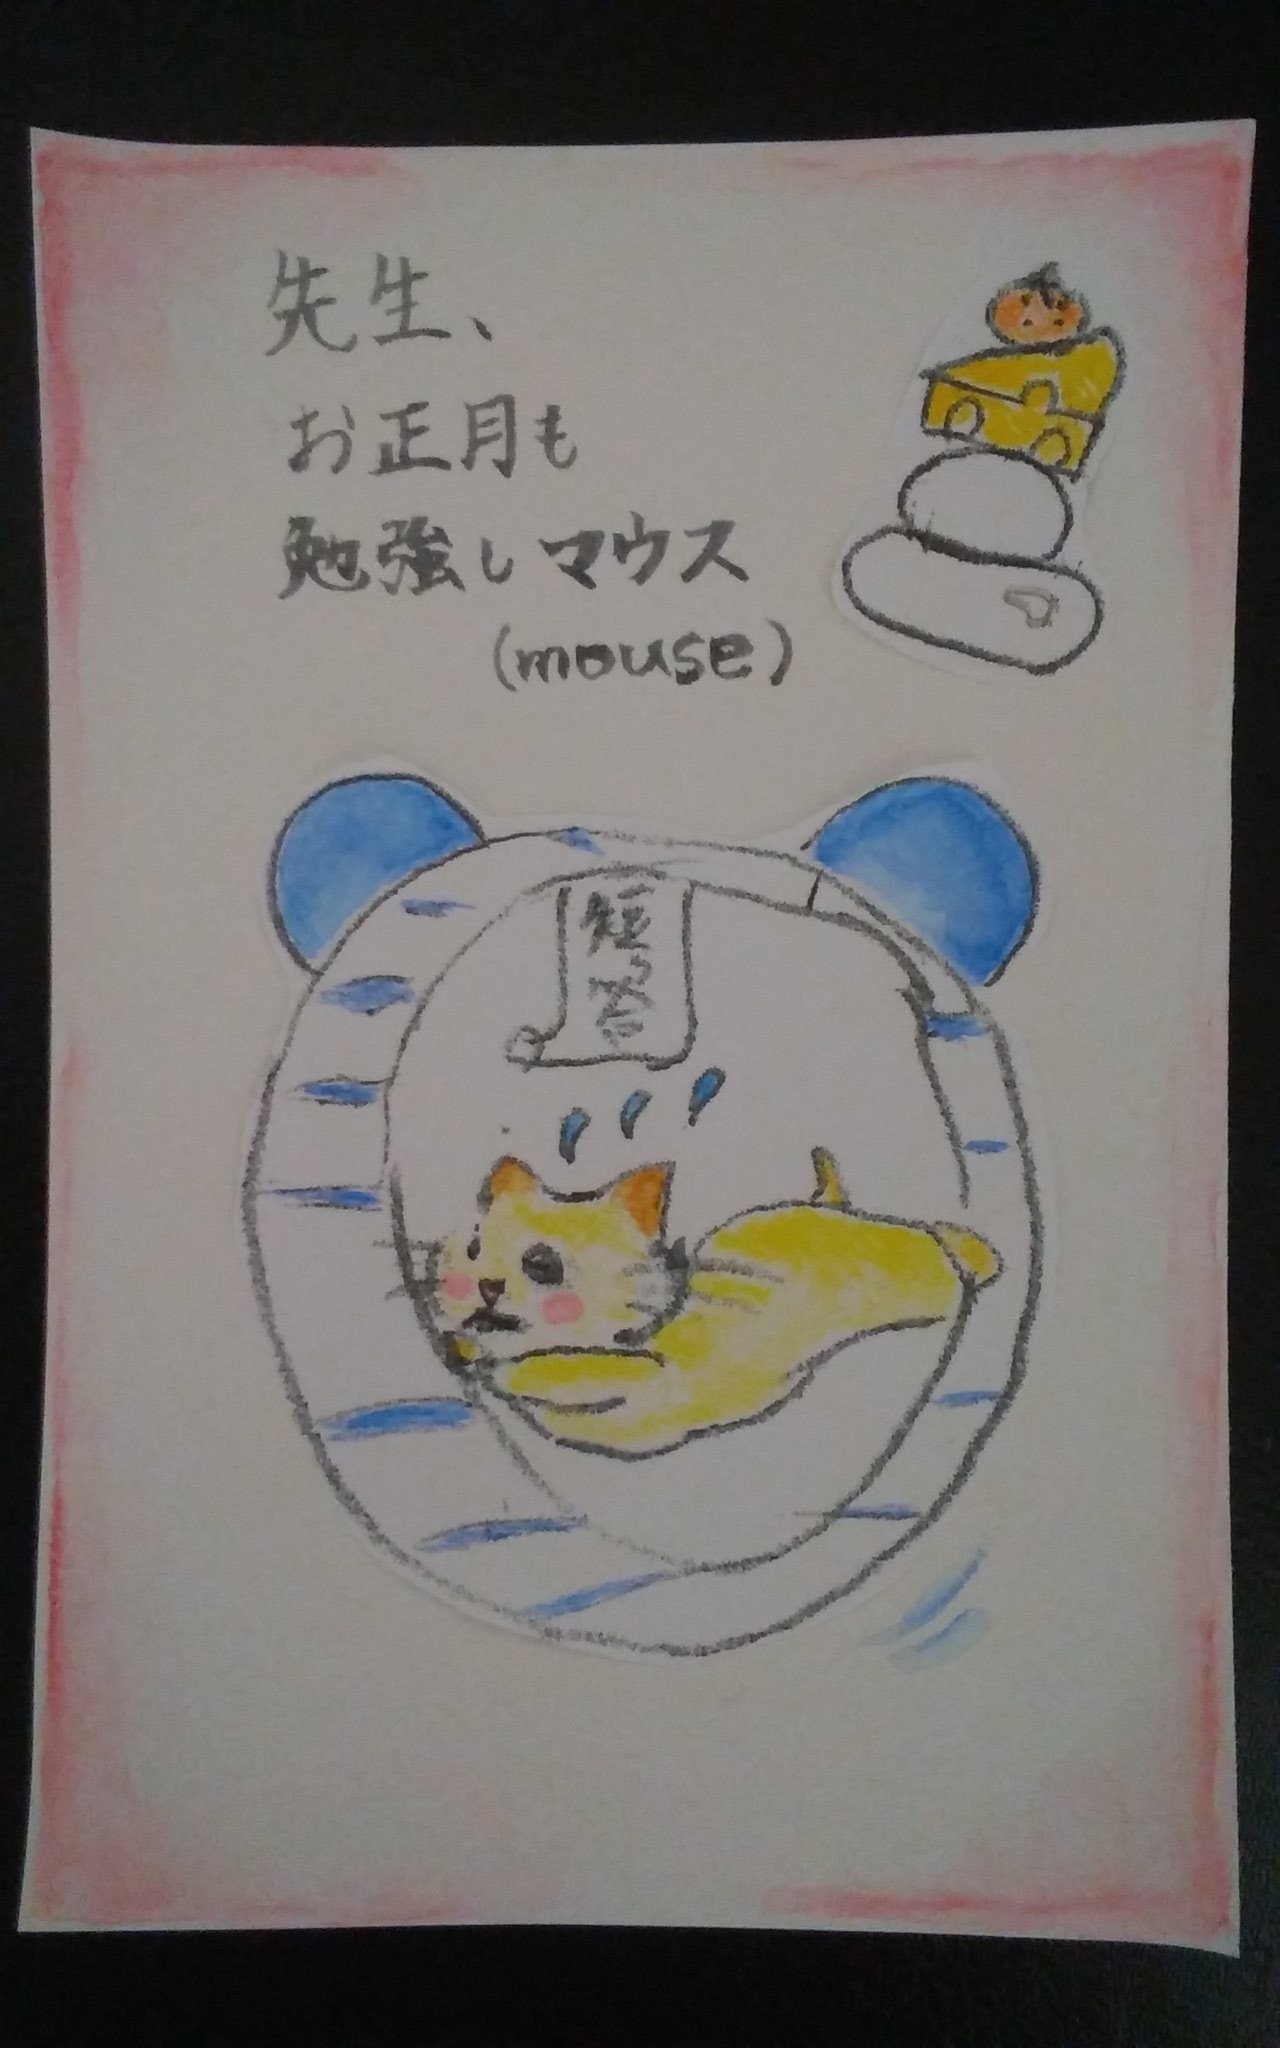 先生、
お正月も
勉強しマウス
(mouse)
短答